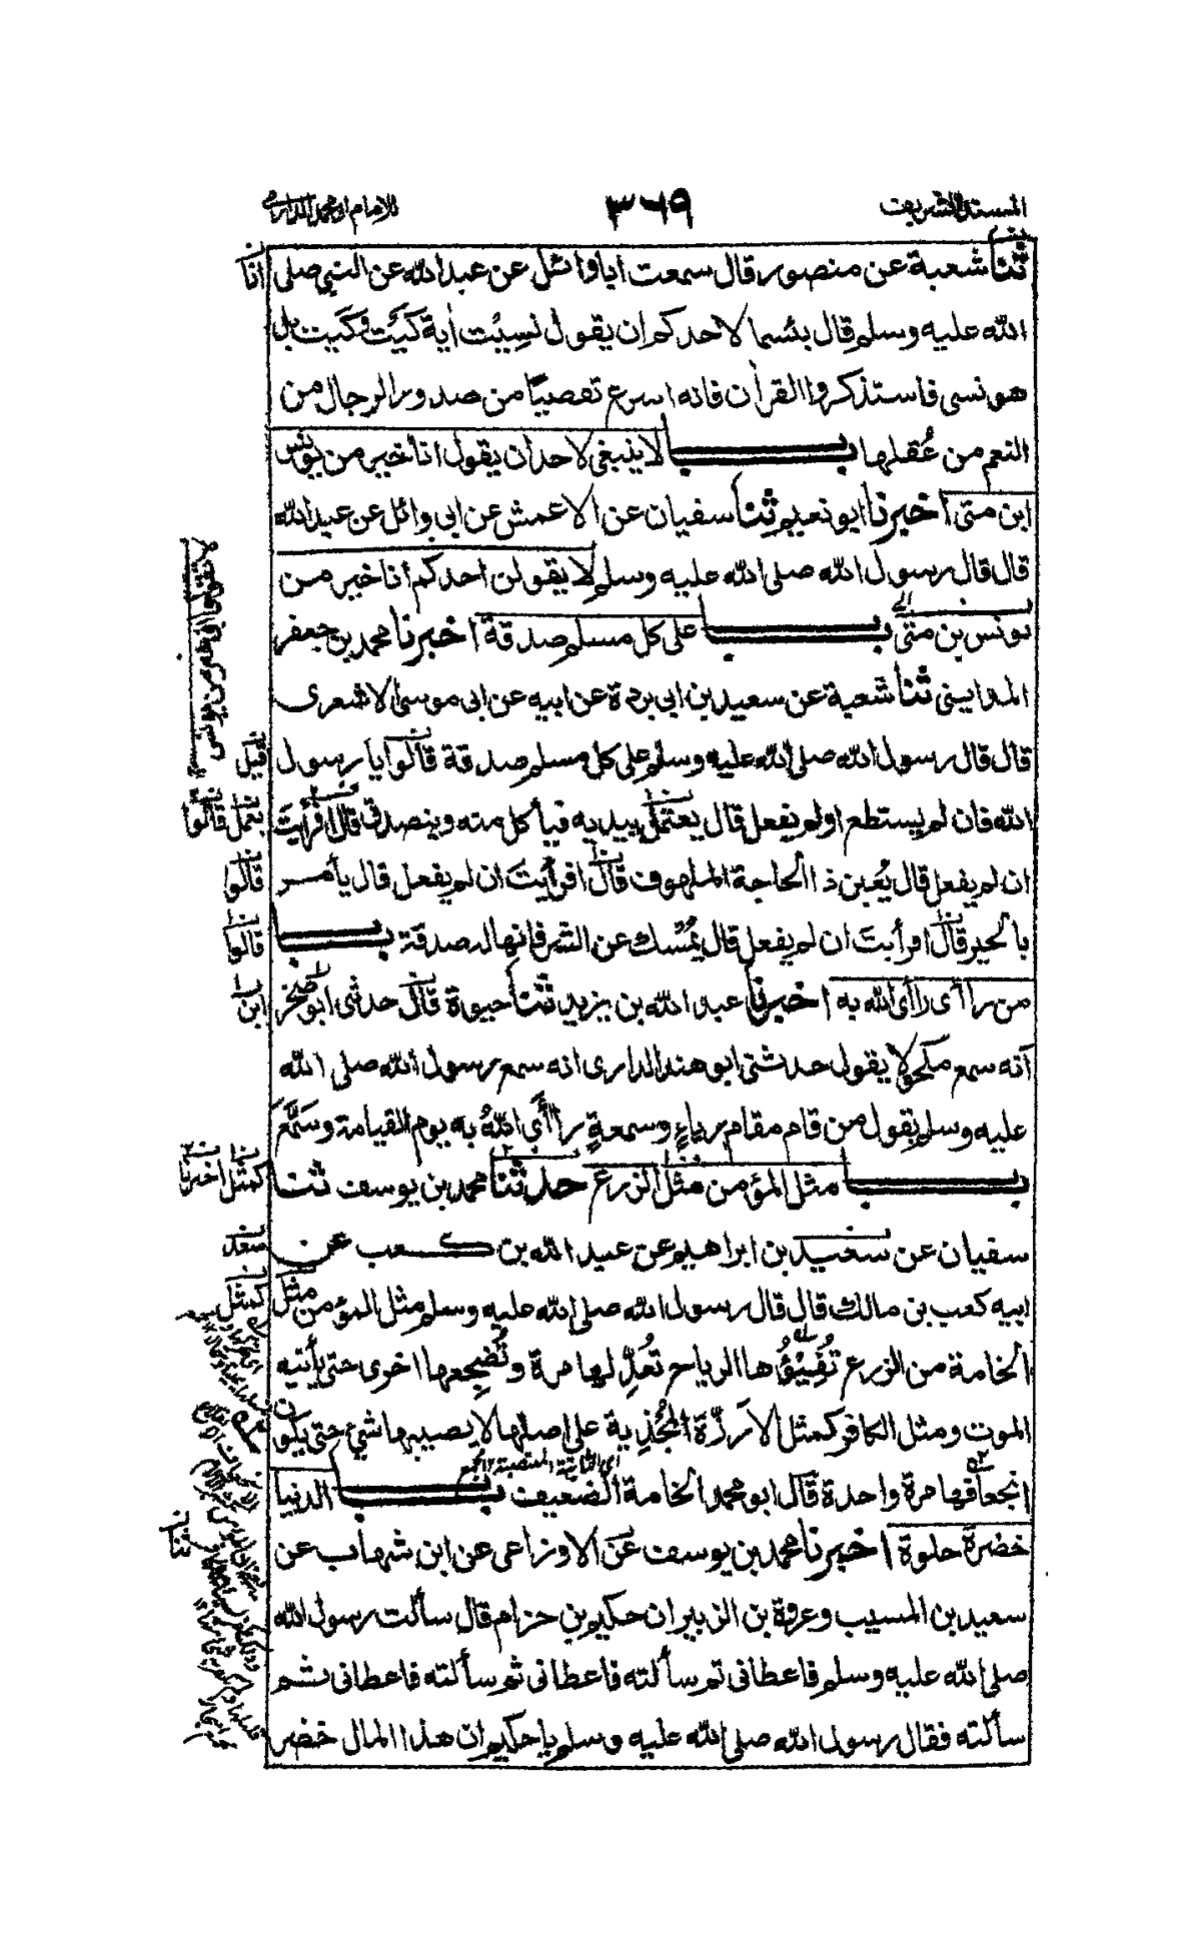 المسند الشريف
٣٦٩
للامام ابو محمد الدارمى
ثنا شعبة عن منصور قال سمعت ابا وائل عن عبد الله عن النبي صلى
الله عليه وسلم قال بئسما لاحدكم ان يقول نسِيْت اٰية كَيَتَ وَكَيَت بل
هو نسى فاستذكروا القرآن فانه اسرع تفصيًا من صدور الرجال من
النعم من عُقلها باب لا ينبغى لاحد ان يقول انا خير من يونس
ابن متى اخبرنا ابو نعيم ثنا سفيان عن الاعمش عن ابي وائل عن عبد الله
قال قال رسول الله صلى الله عليه وسلم لا يقولن احدكم انا خير من
يونس بن متى باب على كل مسلم صدقة اخبرنا محمد بن جعفر
المدايينى ثنا شعبة عن سعيد بن ابي بردة عن ابيه عن ابى موسى الاشعرى
قال قال رسول الله صلى الله عليه وسلم على كل مسلم صدقة قالوا يا رسول
الله فان لم يستطع او لم يفعل قال يعتمل بيديه فيأكل منه ويتصدق قال افرأيت
ان لم يفعل قال يُعين ذا الحاجة الملهوف قال افرأيتَ ان لم يفعل قال يأمر
بالخير قال افرأيتَ ان لم يفعل قال يُمْسك عن الشر فانها له صدقة باب
من راأى راأى الله به اخبرنا عبد الله بن يزيد ثنا حيوة قال حدثنى ابو صخر
انه سمع مكحولا يقول حدثنى ابو هند الدارى انه سمع رسول الله صلى الله
عليه وسلم يقول من قام مقام رياءٍ وسمعةٍ راأَى اللهُ به يوم القيامة وسَمَّعَ
باب مثل المؤمن مثل الزرع حدثنا محمد بن يوسف ثنا
سفيان عن سعيد بن ابراهيم عن عبد الله بن كعب عن
ابيه كعب بن مالك قال قال رسول الله صلى الله عليه وسلم مثل المؤمن مثل
الخامة من الزرع تُفَيِّئُها الرياح تُعَدِّلها مرة وتُضْجِعها اخرى حتى يأتيه
الموت ومثل الكافر كمثل الارزّة المُجْذِية على اصلها لا يصيبها شئ حتى يكون
اى الثابتة المنتصبة
انجعافها مرة واحدة قال ابو محمد الخامة الضعيف باب الدنيا
خضرة حلوة اخبرنا محمد بن يوسف عن الاوزاعى عن ابن شهاب عن
سعيد بن المسيب وعروة بن الزبير ان حكيم بن حزام قال سألت رسول الله
صلى الله عليه وسلم فاعطانى ثم سألته فاعطانى ثم سألته فاعطانى ثم
سألته فقال رسول الله صلى الله عليه وسلم يا حكيم ان هذا المال خضر
انا
قيل
يعمل قالوا
قالوا
قالوا
ابن
كمثل اخبرنا
سعد
كمثل
ثنا